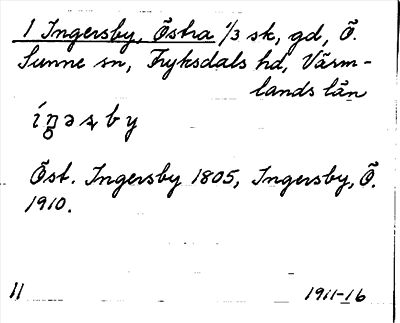 1 Ingersby, Östra 1/3 sk, gd, Ö.
Sunne sn, Fryksdals hd, Värm-
lands län
Öst. Ingersby 1805, Ingersby, Ö.
1910.
11
1911-16